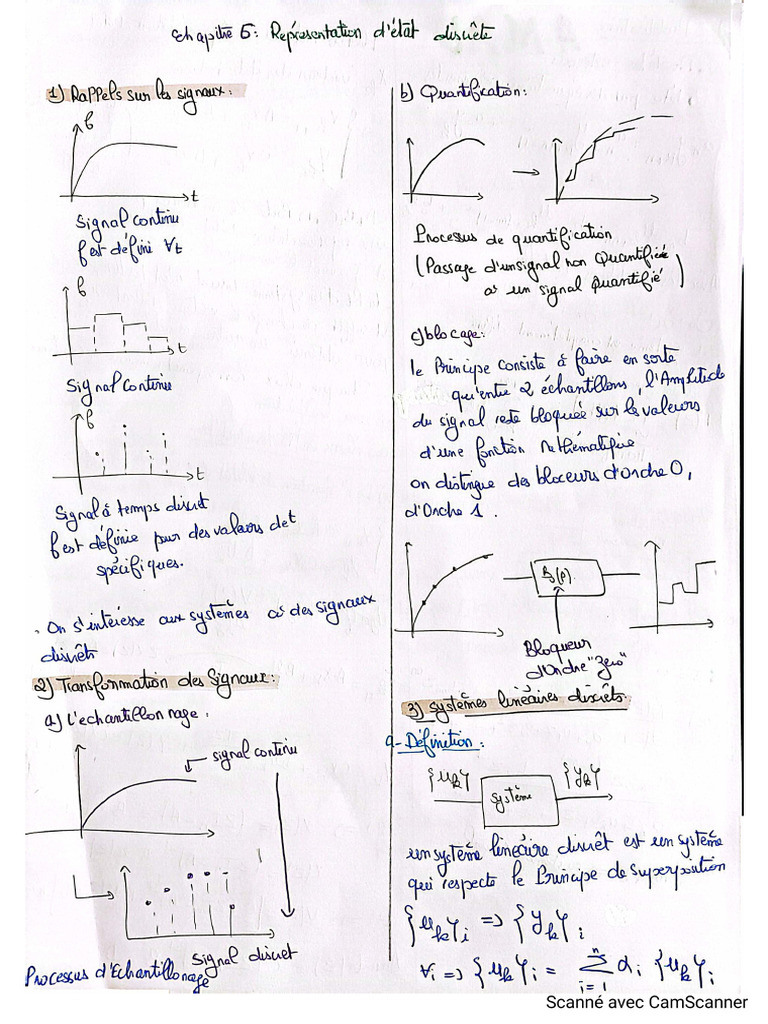 Chapitre 5: Représentation d'état discrète
1) Rappels sur les signaux:
f
t
Signal continu
f est défini ∀t
f
t
Signal continu
f
t
Signal à temps discret
f est définie pour des valeurs de t
spécifiques.
. On s'intéresse aux systèmes à des signaux
discrêts
2) Transformation des Signaux:
a) L'echantillonnage:
signal continu
Signal discret
Processus d'Echantillonage
b) Quantification:
Processus de quantification
(Passage d'un signal non Quantifiée
à un signal Quantifié)
c) blocage:
le Principe consiste à faire en sorte
qu'entre 2 échantillons, l'Amplitude
du signal reste bloquée sur les valeurs
d'une fonction Mathématique
on distingue des bloceurs d'Ordre 0,
d'Ordre 1.
B(p)
Bloqueur
d'Ordre "Zero"
3) systèmes linéaires discrêts
a- Définition:
{u_k}
système
{y_k}
un système linéaire discrêt est un système
qui respecte le Principe de Superposition
{u_k}_i => {y_k}_i
∀i => {u_k}_i = Σ_{i=1}^{n} α_i {u_k}_i
Scanné avec CamScanner